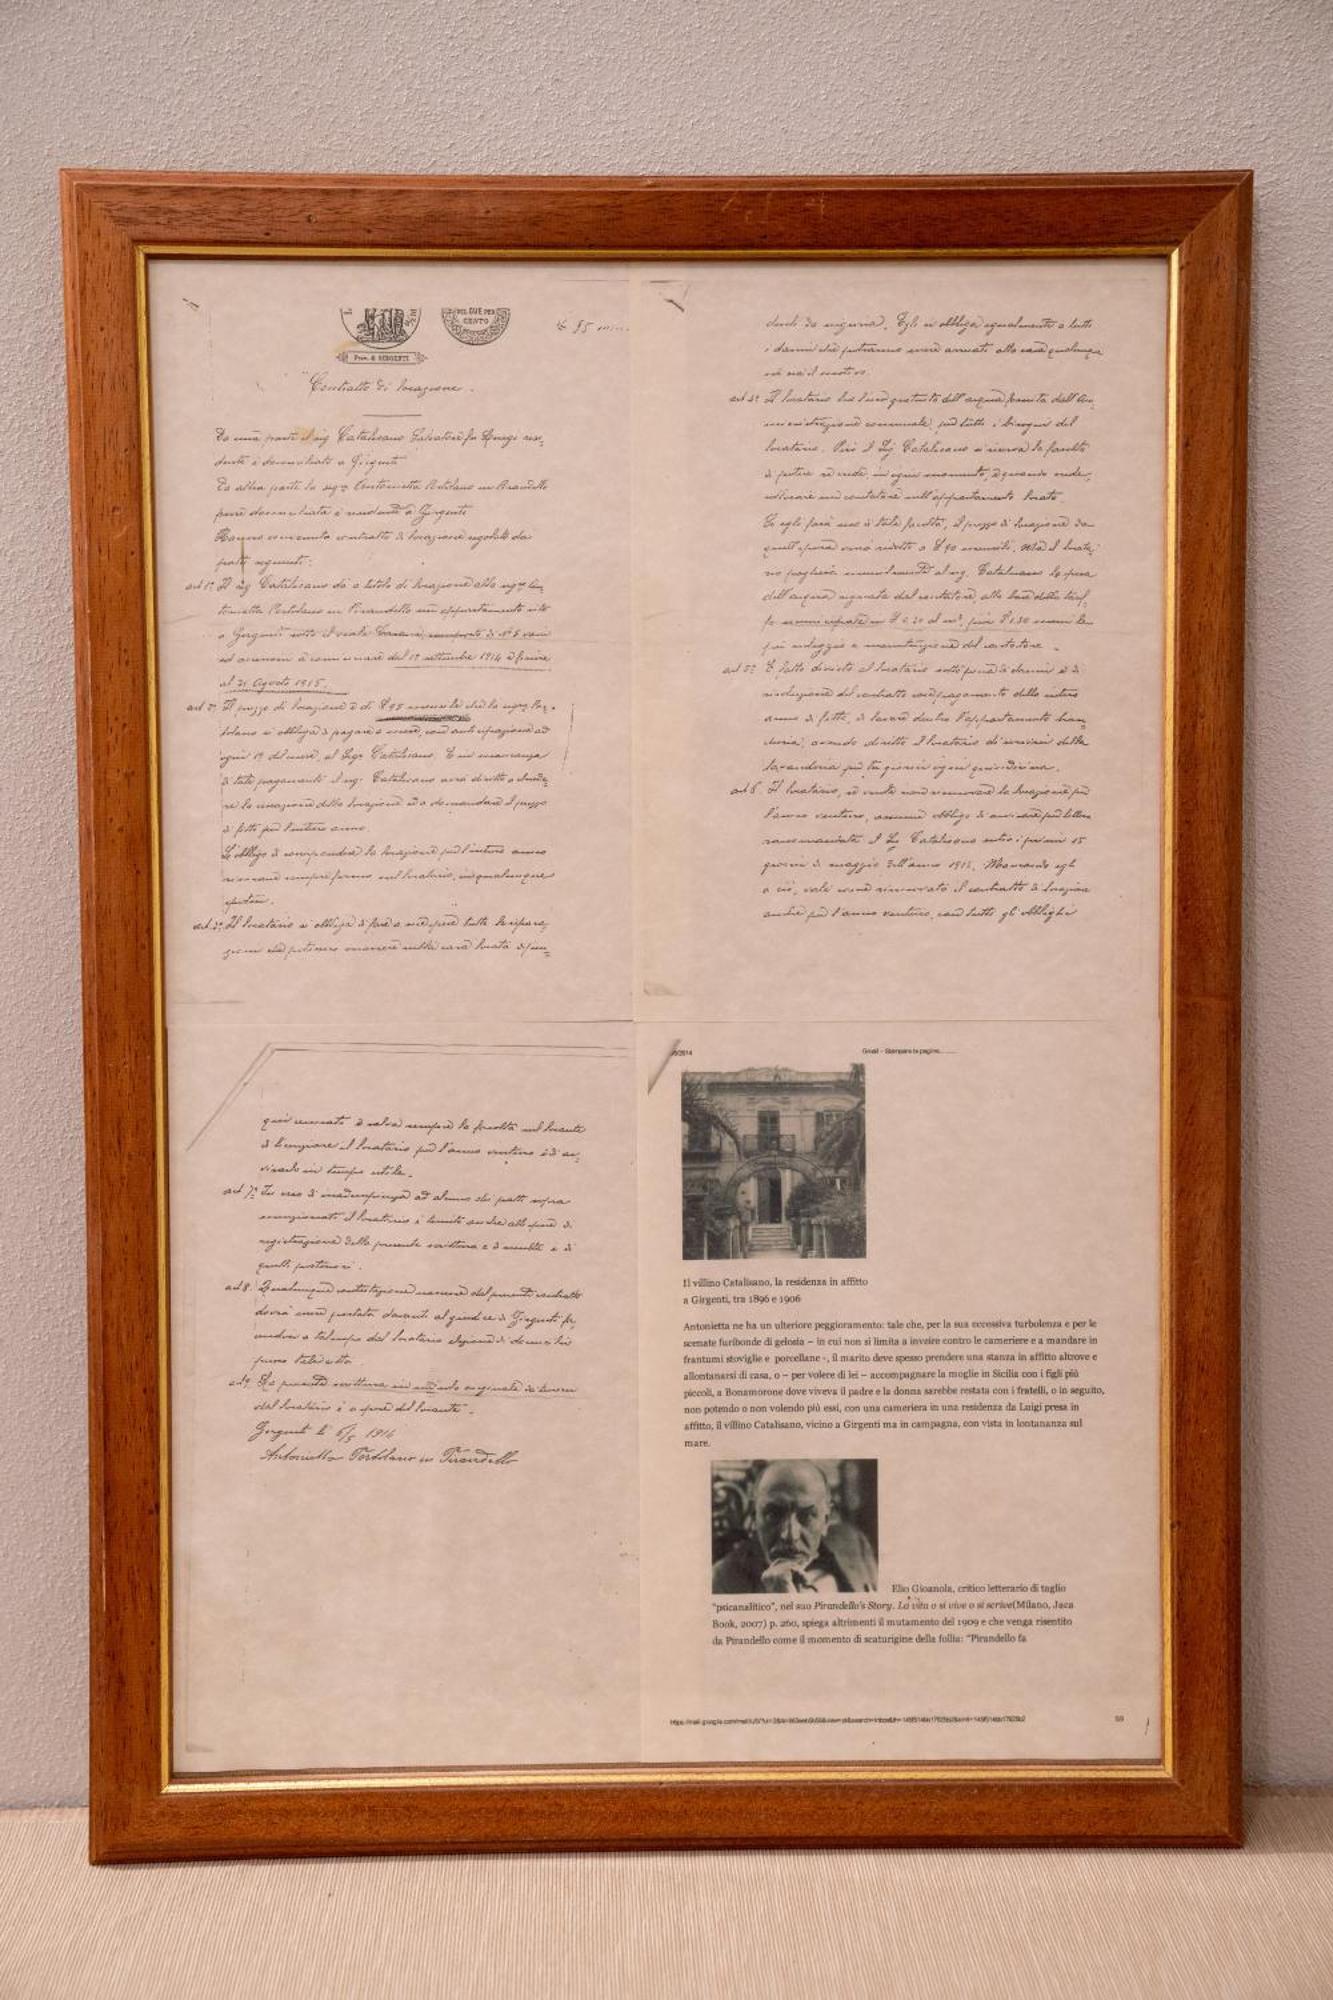 Prov. di GIRGENTI
DEL DUE PER
CENTO
£ 95
Contratto di locazione.
Da una parte il sig Catalisano Salvatore fu Luigi resi-
dente e domiciliato a Girgenti
Da altra parte la sigra Antonietta Portolano in Pirandello
pure domiciliata e residente a Girgenti
Hanno convenuto contratto di locazione regolato dai
patti seguenti:
art 1° Il sig Catalisano dà a titolo di locazione alla sigra An-
tonietta Portolano in Pirandello un appartamento sito
a Girgenti sotto il viale composto di N° 5 vani
ed accessori a cominciare dal 1° settembre 1914 e finire
al 31 Agosto 1915.
art 2° Il prezzo di locazione è di £ 95 mensile che la sigra Por-
tolano si obbliga di pagare con anticipazione ad
ogni 1° del mese, al Sigr Catalisano. E in mancanza
di tale pagamento il sig. Catalisano avrà diritto a chiede-
re la locazione e a domandare il prezzo
di fitto per l'intero anno.
L'obbligo di corrispondere la locazione per l'intero anno
rimane sempre fermo nel locatario, in qualunque
ipotesi.
art 3° Il locatario si obbliga di fare a sue spese tutte le ripara-
zioni che potranno occorrere nella casa locata
denti da incuria. Egli si obbliga egualmente a tutti
i danni che potranno essere arrecati alla casa qualunque
ne sia il motivo.
art 4° Il locatario ha l'uso gratuito dell'acqua fornita dall'Am-
ministrazione comunale, per tutti i bisogni del
locatario. Però il Sig Catalisano si riserva la facoltà
di potere se crede, in ogni momento, e quando crede,
collocare un contatore nell'appartamento locato.
Se egli farà uso di tale facoltà, il prezzo di locazione da
quell'epoca verrà ridotto a £ 90 mensili. Ma il locata-
rio pagherà mensilmente al sig. Catalisano la spesa
dell'acqua segnata dal contatore, alla base della tarif-
fa in £ 0,20 al m³, più £ 1.30 mensile
per noleggio e manutenzione del contatore.
art 5° È fatto divieto al locatario sotto pena di danni e di
risoluzione del contratto con pagamento dello intero
anno di fitto, di lavare dentro l'appartamento bian-
cheria, avendo diritto il locatario di servirsi della
lavanderia per tre giorni ogni quindicina.
art 6° Il locatario, se vuole non rinnovare la locazione per
l'anno venturo, assume obbligo di avvisare per lettera
raccomandata il Sig Catalisano entro i primi 15
giorni di maggio dell'anno 1915. Mancando egli
a ciò, vale come rinnovato il contratto di locazione
anche per l'anno venturo, con tutti gli obblighi
qui e salva sempre la facoltà nel locante
di licenziare il locatario per l'anno venturo e di av-
visarlo in tempo utile.
art 7° In caso di inadempienza ad alcuno dei patti sopra
menzionati il locatario è tenuto anche alle spese di
registrazione della presente scrittura e di multe e di
quelle posteriori.
art 8. Qualunque contestazione nascerà dal presente contratto
dovrà essere portata davanti al giudice di Girgenti
art 9. La presente scrittura
dal locatario è a spese del locante.
Girgenti li 6/5 1914
Antonietta Portolano in Pirandello
/2014
Gmail - Stampare la pagina........
Il villino Catalisano, la residenza in affitto
a Girgenti, tra 1896 e 1906
Antonietta ne ha un ulteriore peggioramento: tale che, per la sua eccessiva turbolenza e per le
scenate furibonde di gelosia – in cui non si limita a inveire contro le cameriere e a mandare in
frantumi stoviglie e porcellane -, il marito deve spesso prendere una stanza in affitto altrove e
allontanarsi di casa, o – per volere di lei – accompagnare la moglie in Sicilia con i figli più
piccoli, a Bonamorone dove viveva il padre e la donna sarebbe restata con i fratelli, o in seguito,
non potendo o non volendo più essi, con una cameriera in una residenza da Luigi presa in
affitto, il villino Catalisano, vicino a Girgenti ma in campagna, con vista in lontananza sul
mare.
Elio Gioanola, critico letterario di taglio
"psicanalitico", nel suo Pirandello's Story. La vita o si vive o si scrive(Milano, Jaca
Book, 2007) p. 260, spiega altrimenti il mutamento del 1909 e che venga risentito
da Pirandello come il momento di scaturigine della follia: "Pirandello fa